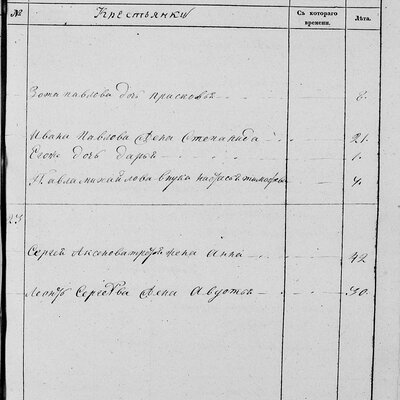 № Крестьянки Съ котораго времени. Лѣта.
Зота Павлова дочь Прасковья 8.
Ивана Павлова жена Степанида 21.
Его дочь Дарья 1.
Павла Михайлова внука 4.
23
Сергея Аксенова жена Анна 42
жена Авдотья 30.